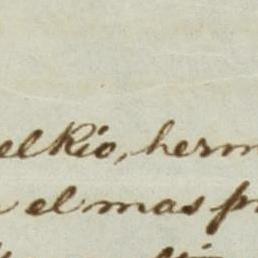 el Rio, herm
el mas p